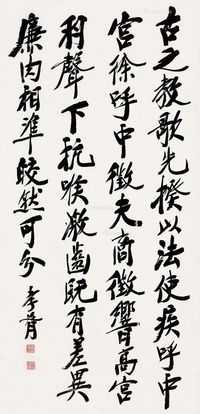 古之教歌先揆以法使疾呼中
宮徐呼中徵夫商徵響高宮
羽聲下抗喉激齒既有差異
廉肉相準皎然可分